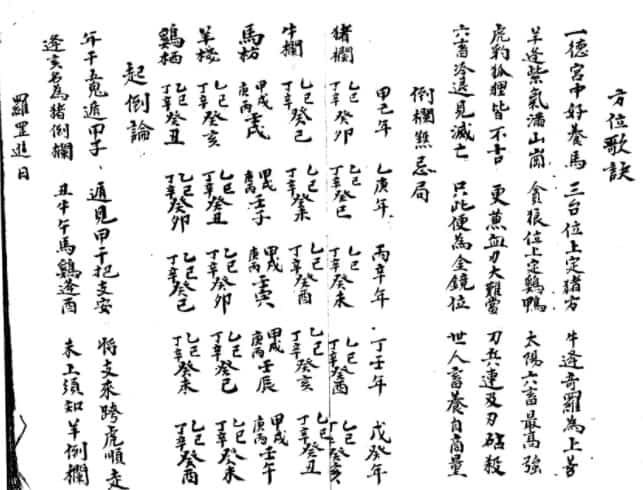 方位歌訣
一德宮中好養馬 三台位上定猪方 牛逢奇羅為上吉
羊逢紫氣滿山崗 貪狼位上定鷄鴨 太陽六畜最高強
虎豹狐狸皆不吉 更蕙血刃大難當 刀兵連及刃砧殺
六畜冷退見滅亡 只此便為金鏡位 世人畜養自商量
倒欄煞忌局
甲己年 乙庚年 丙辛年 丁壬年 戊癸年
猪欄 乙己丁辛癸卯 乙己丁辛癸巳 乙己丁辛癸未 乙己丁辛癸酉 乙己丁辛癸亥
牛欄 乙己丁辛癸巳 乙己丁辛癸未 乙己丁辛癸酉 乙己丁辛癸亥 乙己丁辛癸丑
馬枋 甲戌庚丙壬戌 甲戌庚丙壬子 甲戌庚丙壬寅 甲戌庚丙壬辰 甲戌庚丙壬午
羊棧 乙己丁辛癸亥 乙己丁辛癸丑 乙己丁辛癸卯 乙己丁辛癸巳 乙己丁辛癸未
鷄栖 乙己丁辛癸丑 乙己丁辛癸卯 乙己丁辛癸巳 乙己丁辛癸未 乙己丁辛癸酉
起倒論
年干五鬼遁甲子 遁見甲干把支安 將支來跨虎順走
逢亥名為猪倒欄 丑牛午馬鷄逢酉 未上須知羊倒欄
羅罡進日